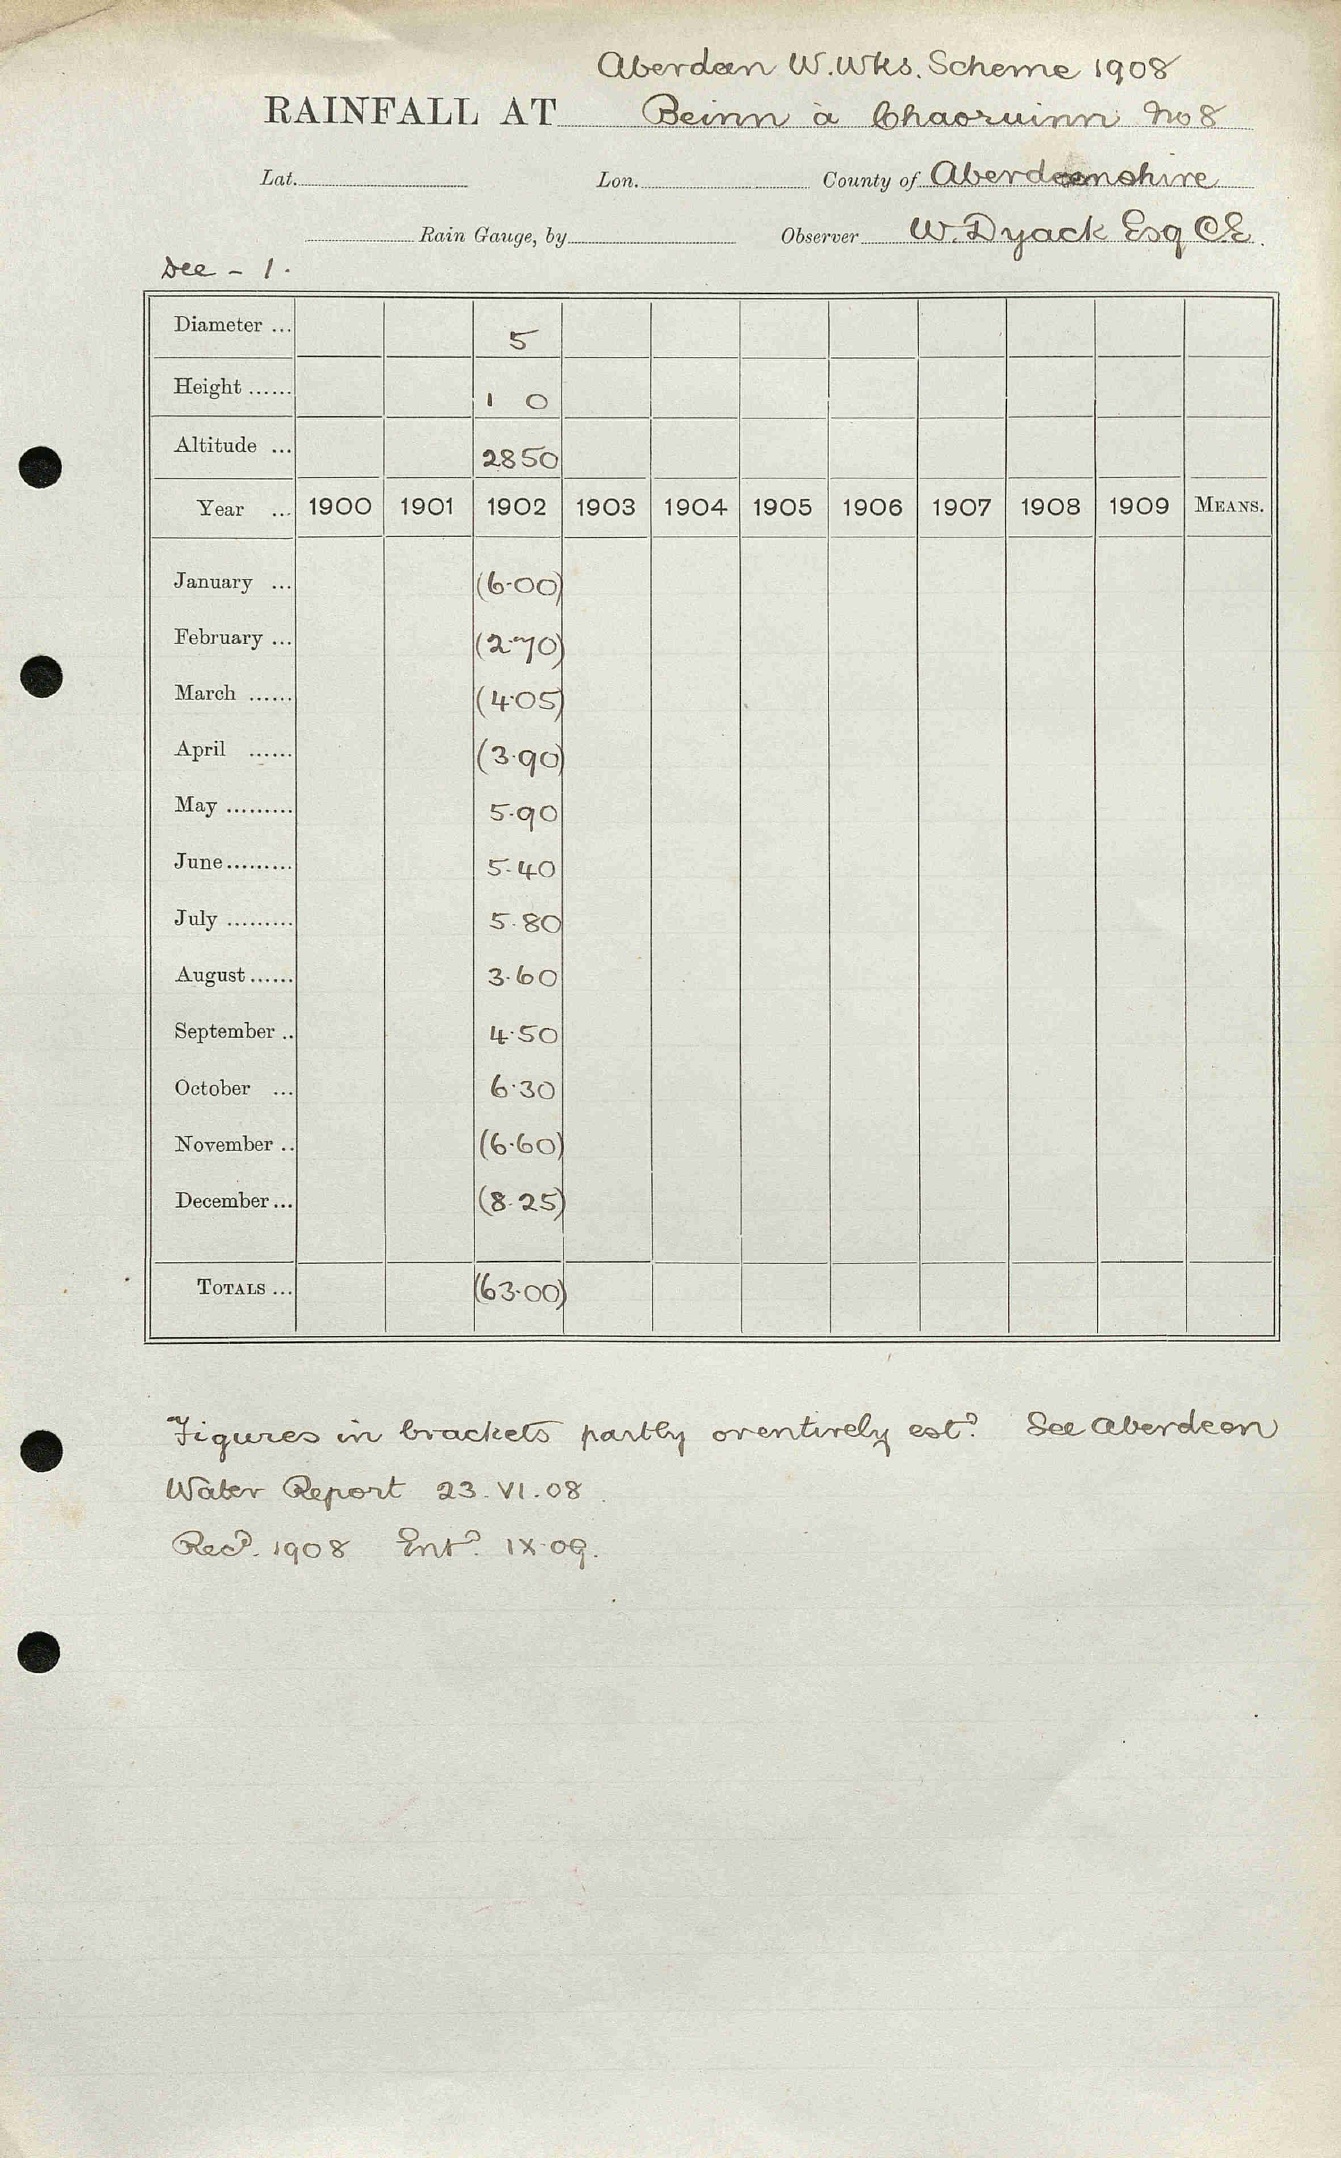 Aberdeen W.Wks. Scheme 1908
RAINFALL AT Beinn à Chaoruinn No 8
Lat. Lon. County of Aberdeenshire
Rain Gauge, by Observer W. Dyack Esq C.E.
Dee - 1.
Diameter ... 5
Height ...... 1 0
Altitude ... 2850
Year ... 1900 1901 1902 1903 1904 1905 1906 1907 1908 1909 MEANS.
January ... (6.00)
February ... (2.70)
March ...... (4.05)
April ...... (3.90)
May ......... 5.90
June......... 5.40
July ......... 5.80
August...... 3.60
September .. 4.50
October ... 6.30
November .. (6.60)
December... (8.25)
TOTALS ... (63.00)
Figures in brackets partly or entirely estd. See Aberdeen
Water Report 23.VI.08.
Recd. 1908 Entd. IX.09.